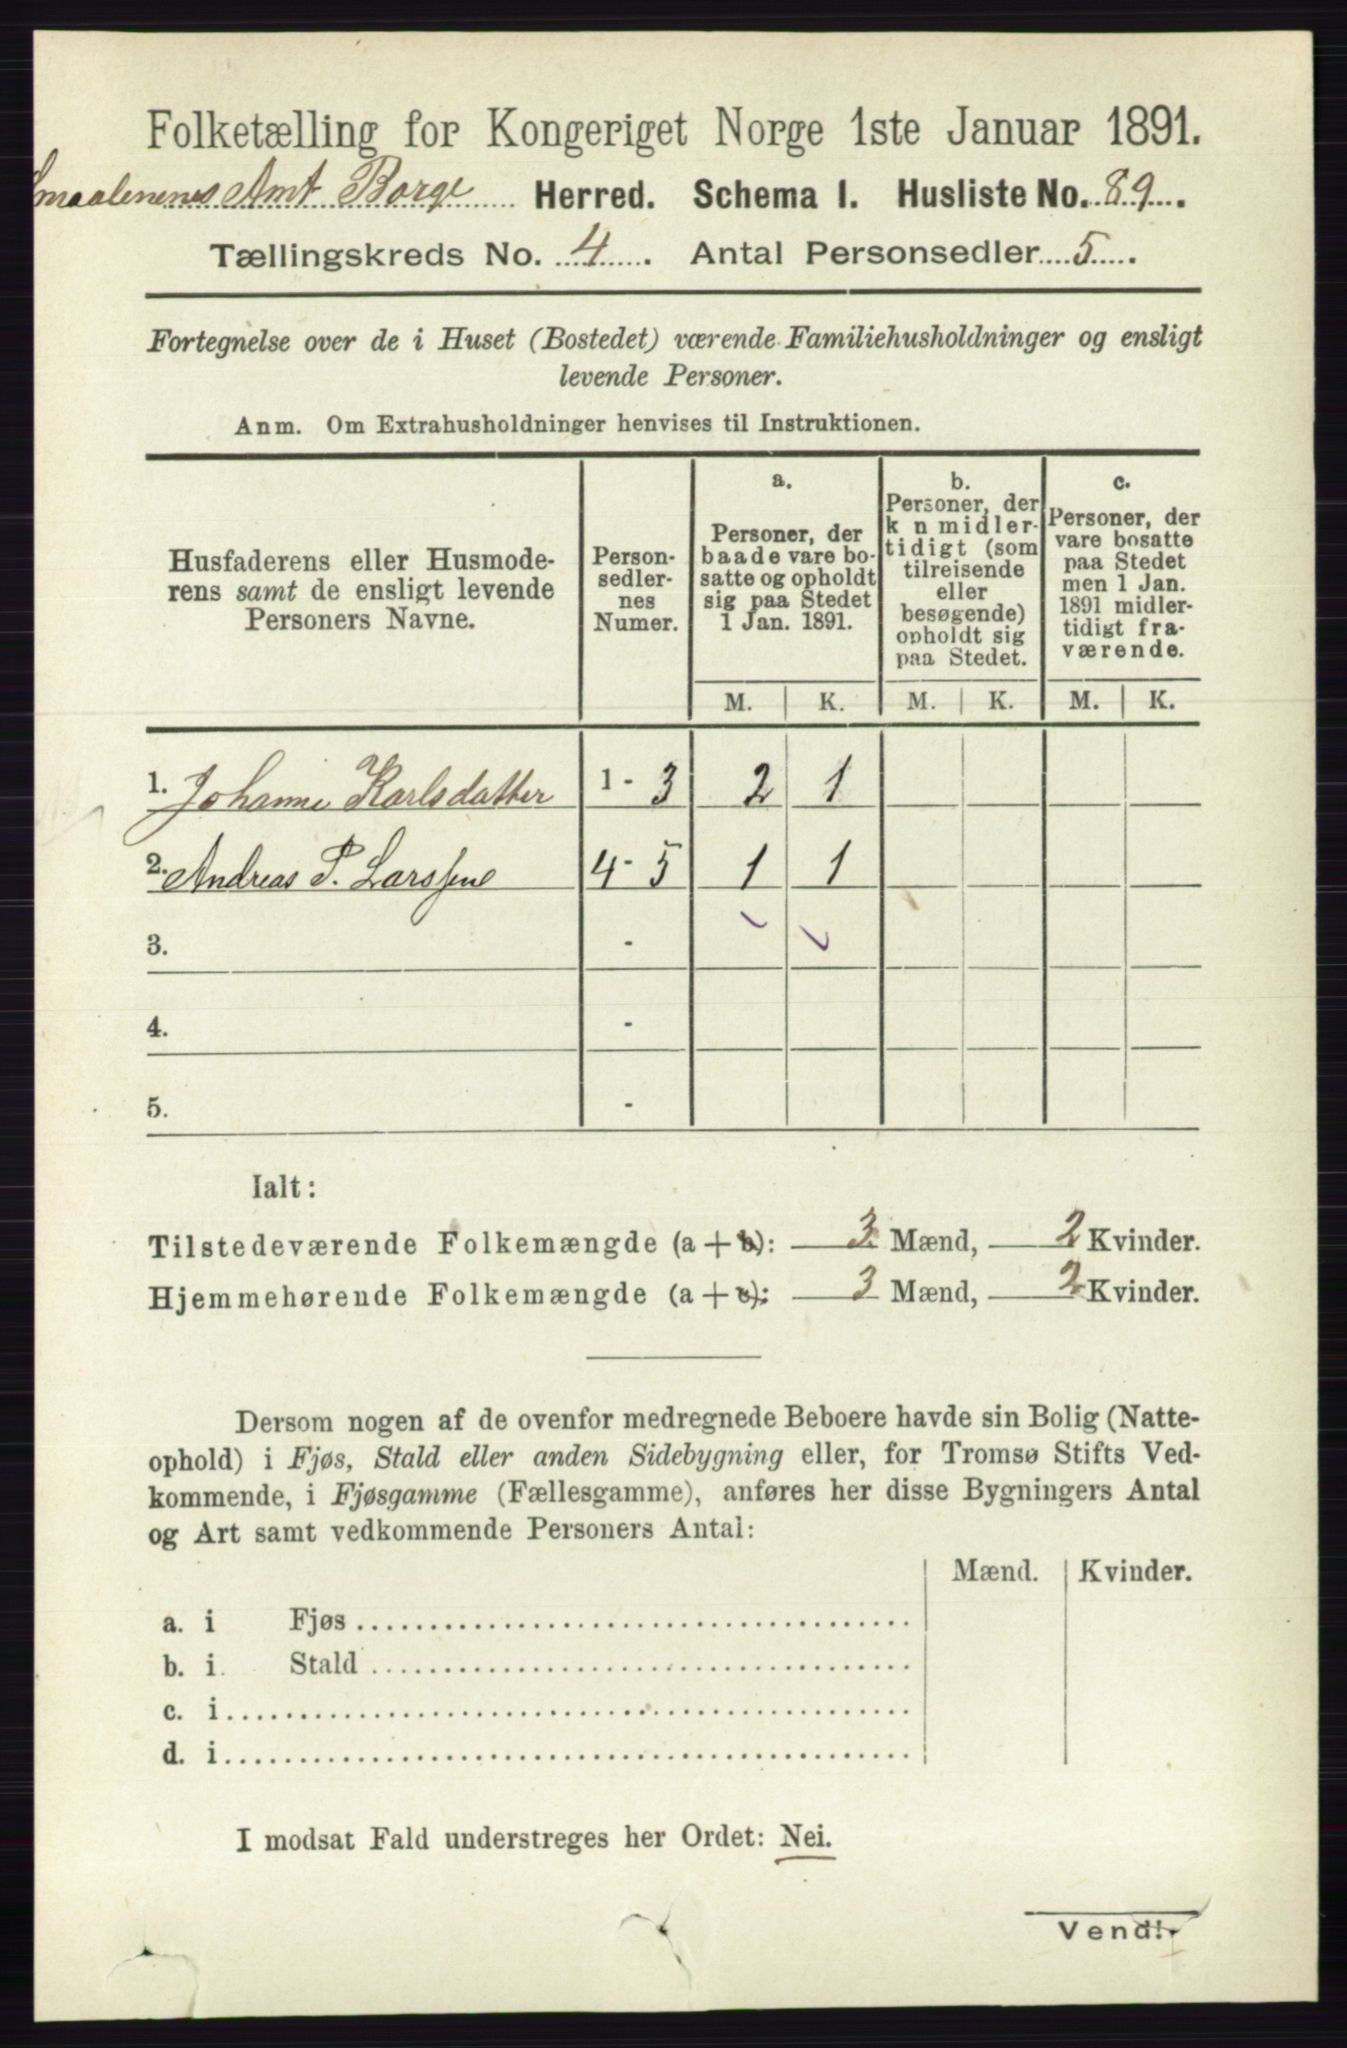 Folketælling for Kongeriget Norge 1ste Januar 1891.
Smaalenenes Amt Borge Herred. Schema I. Husliste No. 89.
Tællingskreds No. 4. Antal Personsedler 5.
Fortegnelse over de i Huset (Bostedet) værende Familiehusholdninger og ensligt
levende Personer.
Anm. Om Extrahusholdninger henvises til Instruktionen.
Husfaderens eller Husmode-
rens samt de ensligt levende
Personers Navne.
Person-
sedler-
nes
Numer.
a.
Personer, der
baade vare bo-
satte og opholdt
sig paa Stedet
1 Jan. 1891.
b.
Personer, der
k n midler-
tidigt (som
tilreisende
eller
besøgende)
opholdt sig
paa Stedet.
c.
Personer, der
vare bosatte
paa Stedet
men 1 Jan.
1891 midler-
tidigt fra-
værende.
M. K. M. K. M. K.
1. Johanne Karlsdatter 1 - 3 2 1
2. Andreas P. Larssen 4 - 5 1 1
3. -
4. -
5. -
Ialt:
Tilstedeværende Folkemængde (a + b): 3 Mænd, 2 Kvinder.
Hjemmehørende Folkemængde (a + c): 3 Mænd, 2 Kvinder.
Dersom nogen af de ovenfor medregnede Beboere havde sin Bolig (Natte-
ophold) i Fjøs, Stald eller anden Sidebygning eller, for Tromsø Stifts Ved-
kommende, i Fjøsgamme (Fællesgamme), anføres her disse Bygningers Antal
og Art samt vedkommende Personers Antal:
Mænd. Kvinder.
a. i Fjøs
b. i Stald
c. i
d. i
I modsat Fald understreges her Ordet: Nei.
Vend!